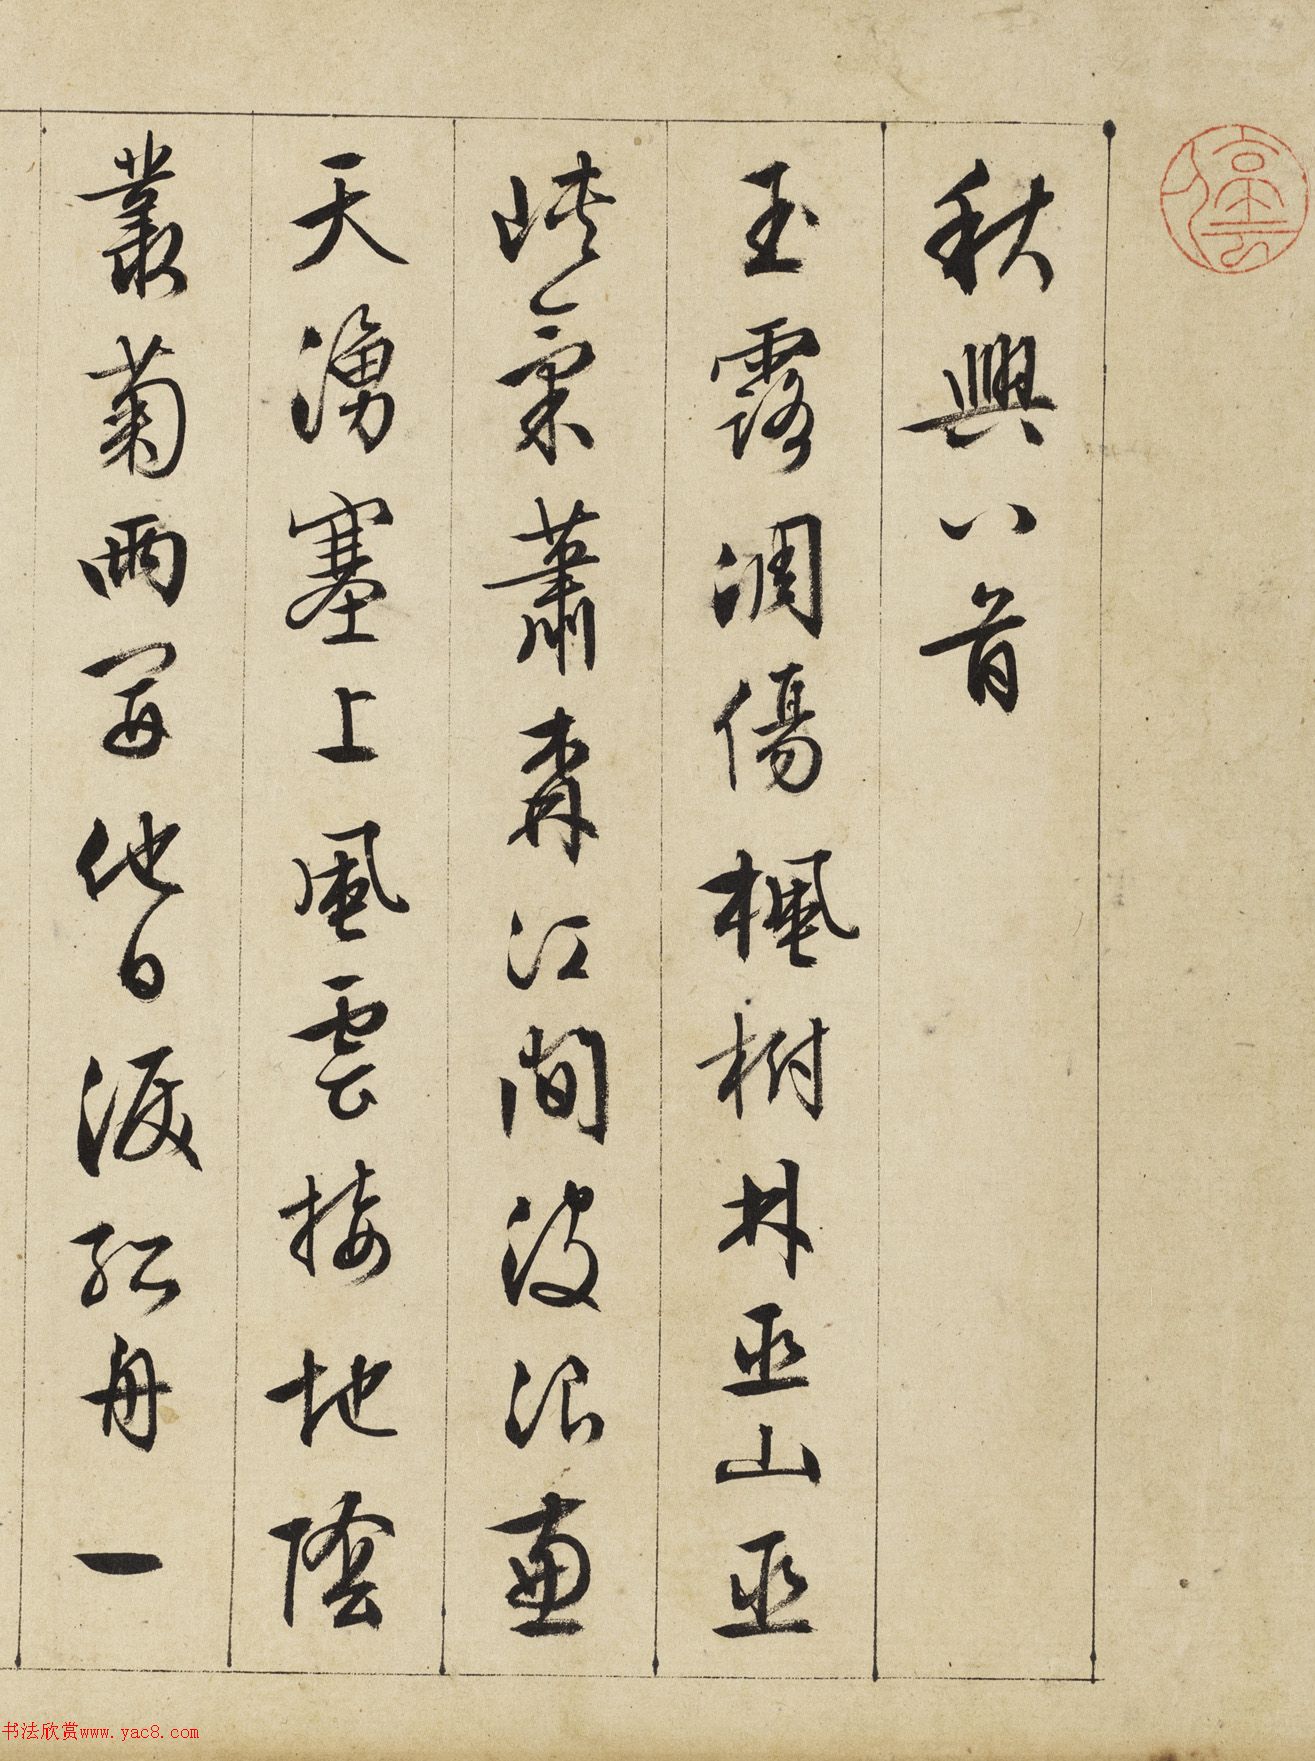 秋興八首
玉露凋傷楓樹林巫山巫
峽氣蕭森江間波浪兼
天湧塞上風雲接地陰
叢菊兩開他日淚孤舟一
停雲
书法欣赏www.yac8.com